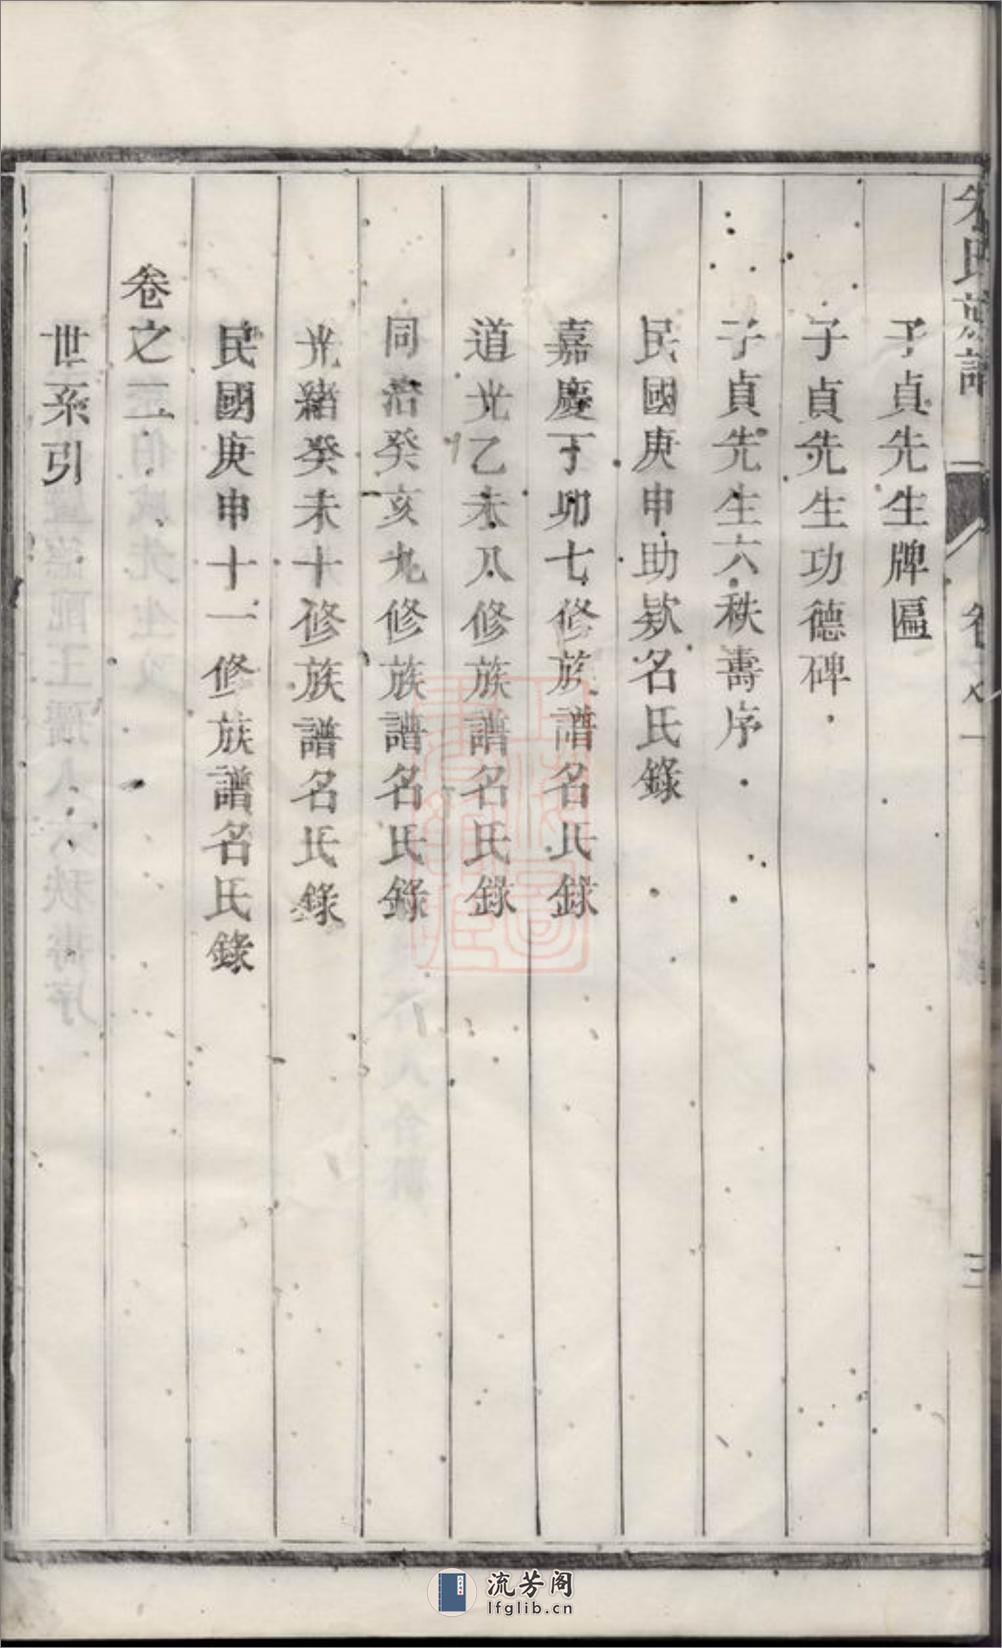 子貞先生牌匾
子貞先生功德碑
子貞先生六秩壽序
民國庚申助欵名氏錄
嘉慶丁卯七修族譜名氏録
道光乙未八修族譜名氏錄
同治癸亥九修族譜名氏錄
光緒癸未十修族譜名氏錄
民國庚申十一修族譜名氏錄
卷之二
世系引
氏族譜
三
流芳阁
lfglib.cn